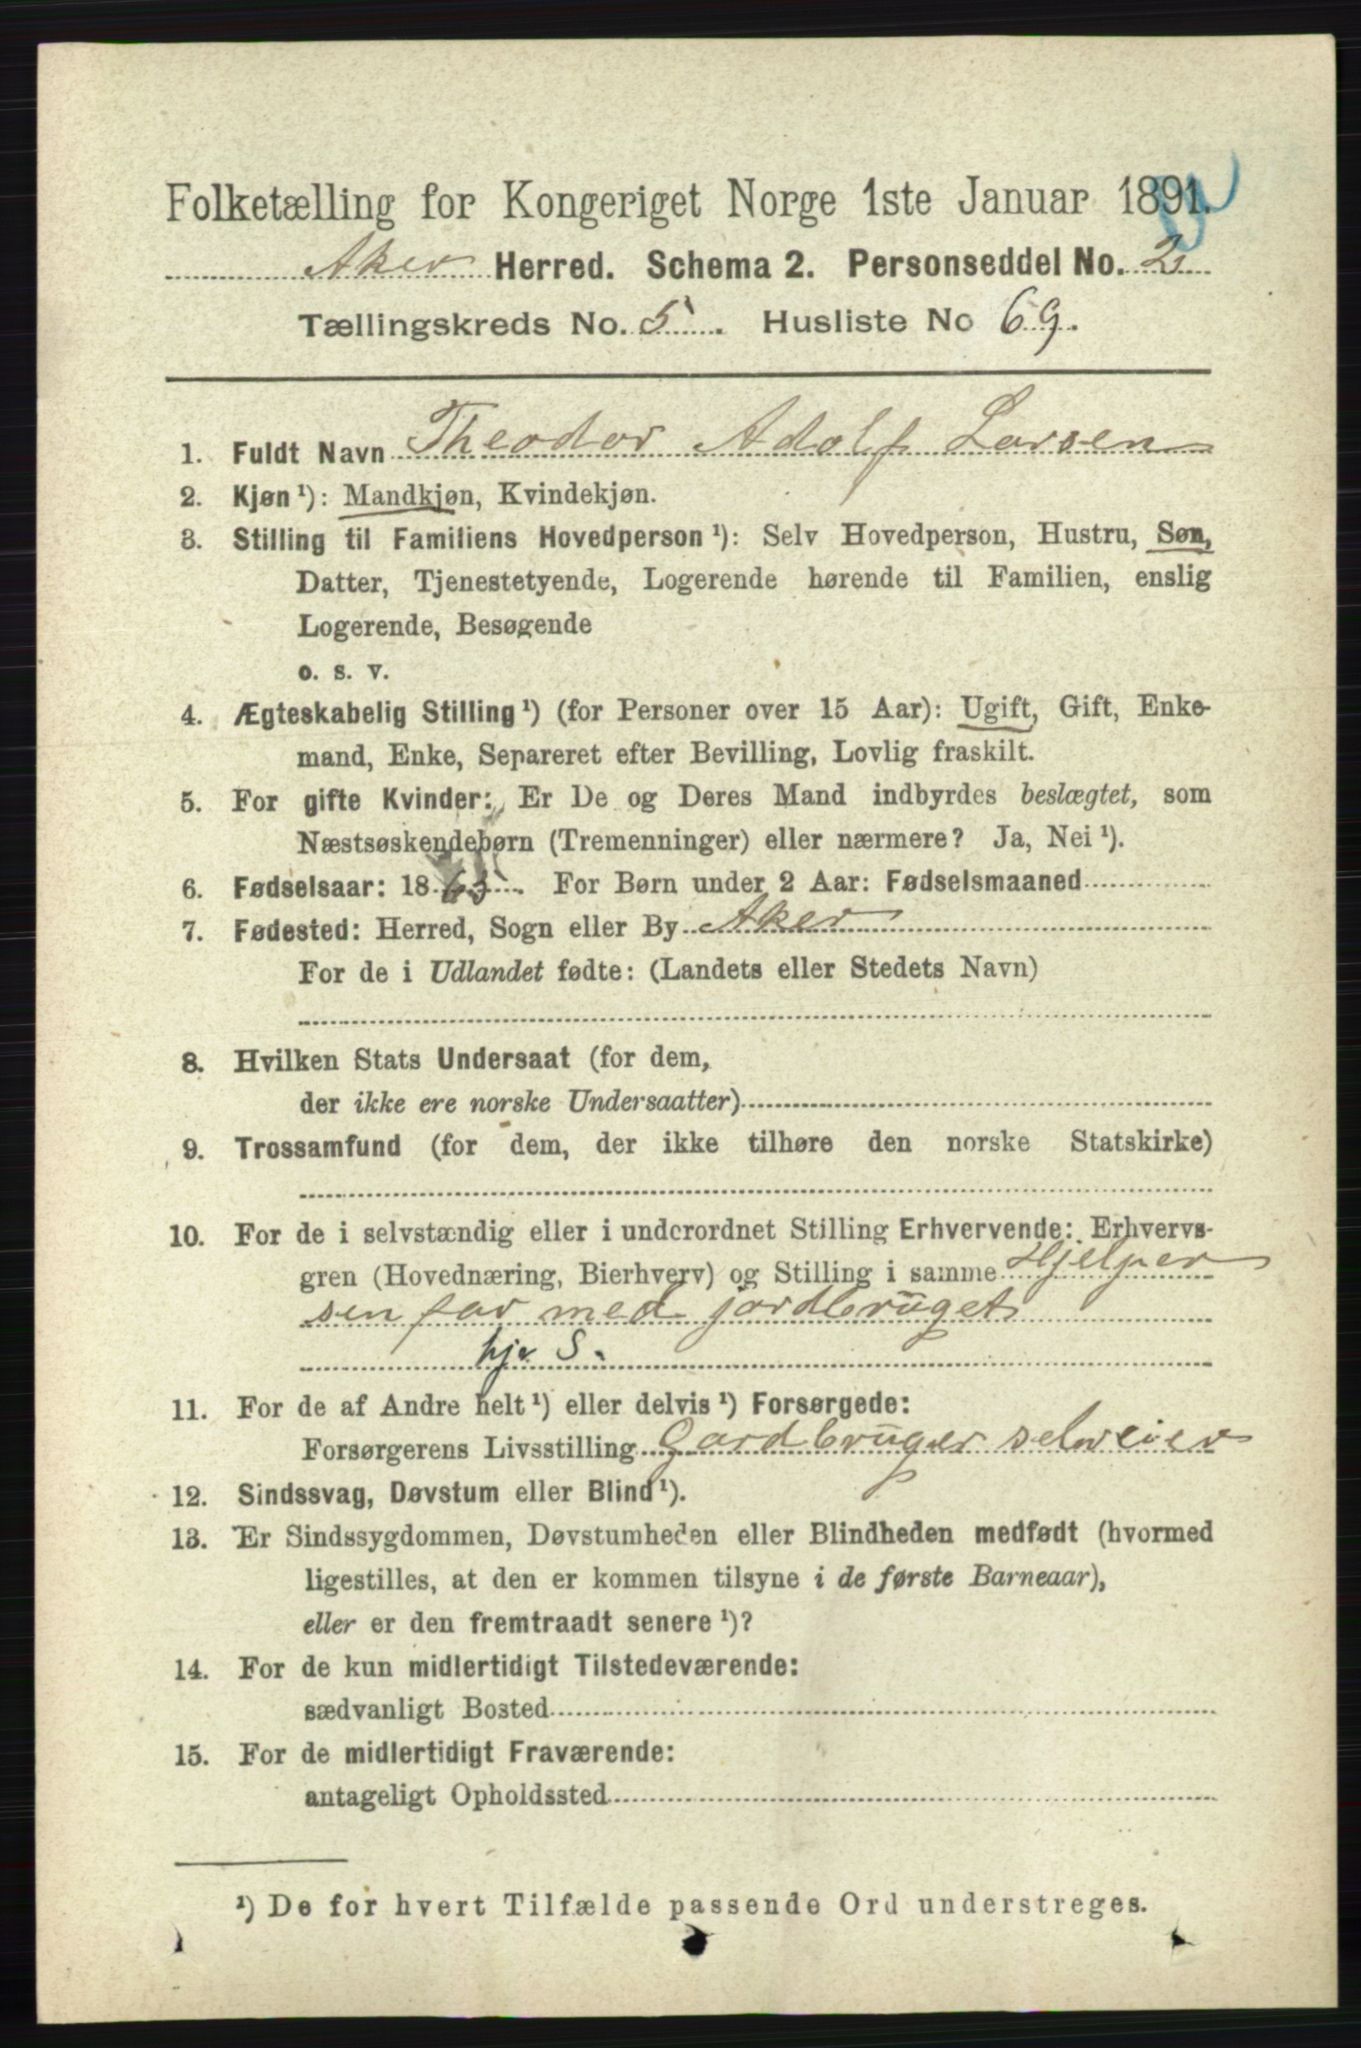 Folketælling for Kongeriget Norge 1ste Januar 1891.
Aker Herred. Schema 2. Personseddel No. 2
Tællingskreds No. 5. Husliste No 69.
1. Fuldt Navn Theodor Adolf Larsen
2. Kjøn ¹): Mandkjøn, Kvindekjøn.
3. Stilling til Familiens Hovedperson ¹): Selv Hovedperson, Hustru, Søn,
Datter, Tjenestetyende, Logerende hørende til Familien, enslig
Logerende, Besøgende
o. s. v.
4. Ægteskabelig Stilling ¹) (for Personer over 15 Aar): Ugift, Gift, Enke-
mand, Enke, Separeret efter Bevilling, Lovlig fraskilt.
5. For gifte Kvinder: Er De og Deres Mand indbyrdes beslægtet, som
Næstsøskendebørn (Tremenninger) eller nærmere? Ja, Nei ¹).
6. Fødselsaar: 1863. For Børn under 2 Aar: Fødselsmaaned
7. Fødested: Herred, Sogn eller By Aker
For de i Udlandet fødte: (Landets eller Stedets Navn)
8. Hvilken Stats Undersaat (for dem,
der ikke ere norske Undersaatter)
9. Trossamfund (for dem, der ikke tilhøre den norske Statskirke)
10. For de i selvstændig eller i underordnet Stilling Erhvervende: Erhvervs-
gren (Hovednæring, Bierhverv) og Stilling i samme Hjelper
sen far med jordbruget
hje S.
11. For de af Andre helt ¹) eller delvis ¹) Forsørgede:
Forsørgerens Livsstilling Gardbruger selveier
12. Sindssvag, Døvstum eller Blind ¹).
13. Er Sindssygdommen, Døvstumheden eller Blindheden medfødt (hvormed
ligestilles, at den er kommen tilsyne i de første Barneaar),
eller er den fremtraadt senere ¹)?
14. For de kun midlertidigt Tilstedeværende:
sædvanligt Bosted
15. For de midlertidigt Fraværende:
antageligt Opholdssted
¹) De for hvert Tilfælde passende Ord understreges.